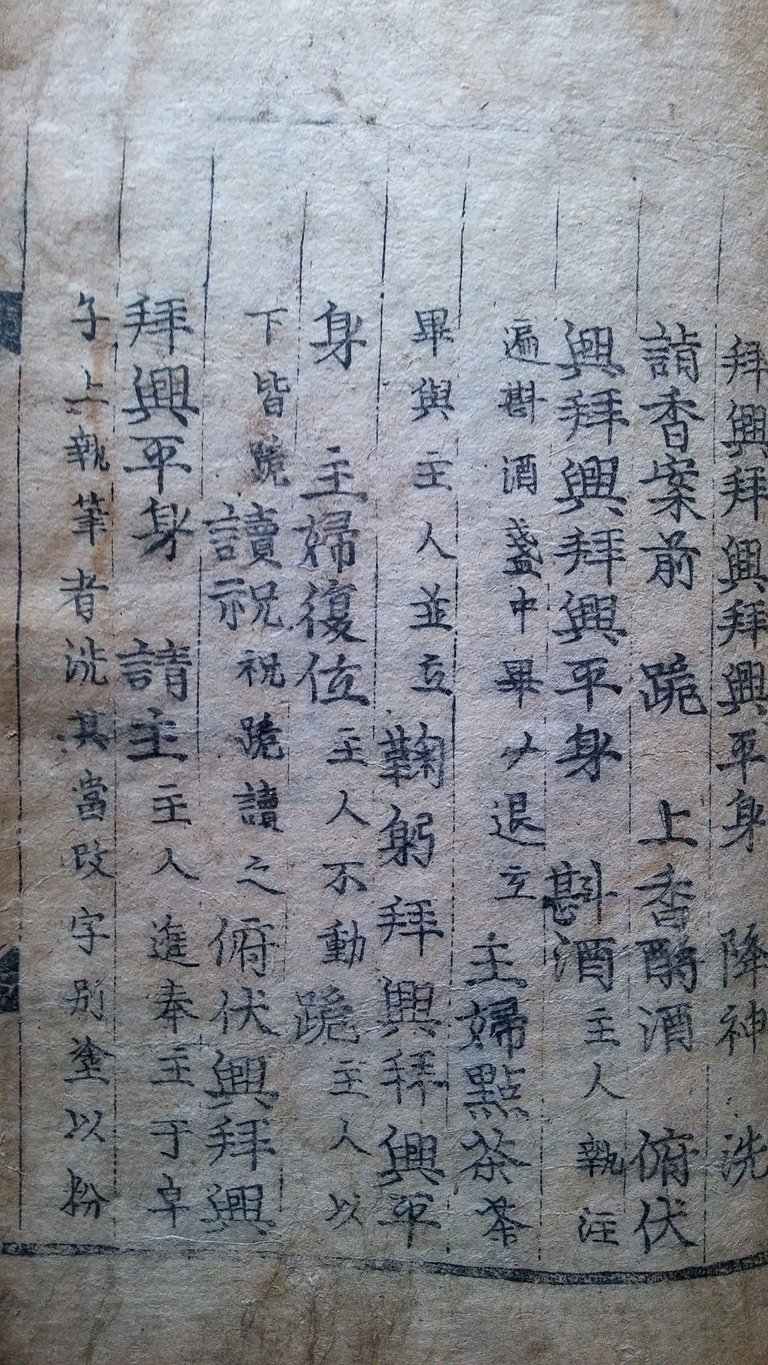 拜興拜興拜興平身 降神 洗
詣香案前 跪 上香酹酒 俯伏
興拜興拜興平身 斟酒主人執注
遍斟酒盞中畢少退立主婦點茶茶
畢與主人並立鞠躬拜興拜興平
身 主婦復位主人不動跪主人以
下皆跪讀祝祝跪讀之俯伏興拜興
拜興平身 請主主人進奉主于卓
子上執筆者洗其當改字別塗以粉